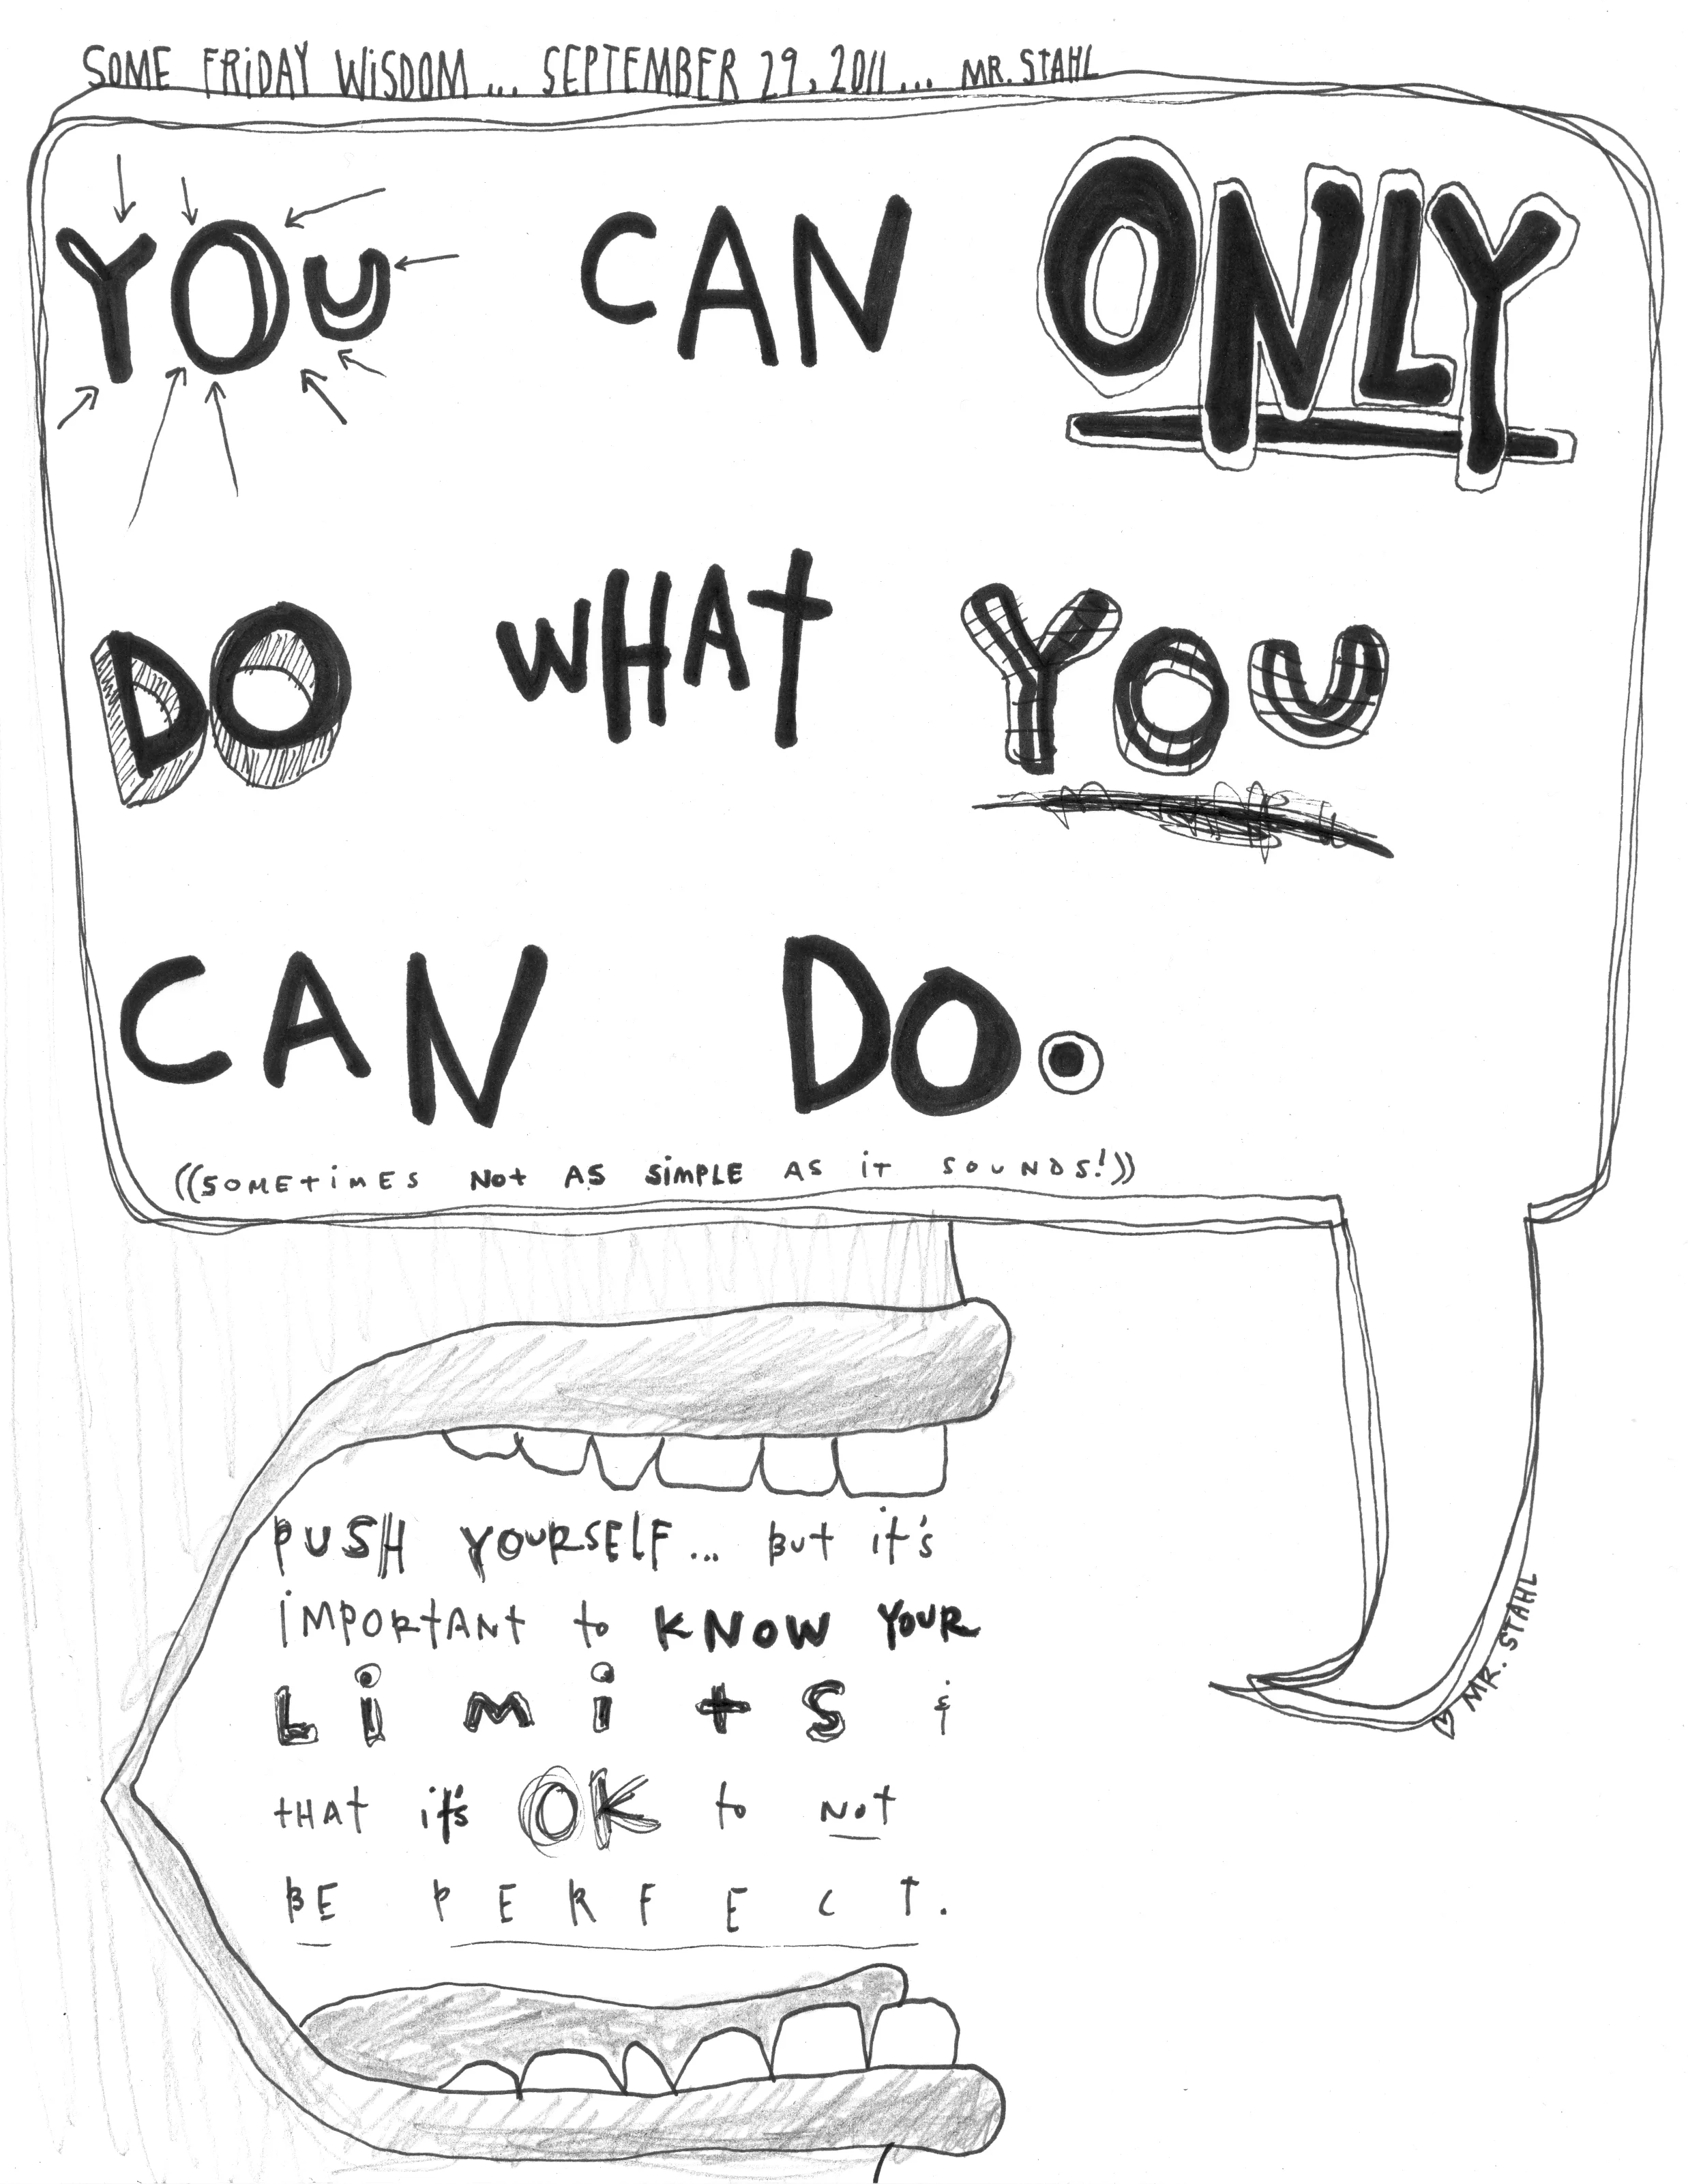 SOME FRiDAY WiSDOM... SEPTEMBER 29, 2011... MR. StAHL
YOU CAN ONLY
DO WHAt YOU
CAN DO.
((SOMEtiMES Not AS SiMPLE AS iT SOUNDS!))
PUSH YOURSELF... But it's
iMPORtANt to KNOW YOUR
LiMitS &
tHAt it's OK to Not
BE PERFECT.
♡ MR. STAHL